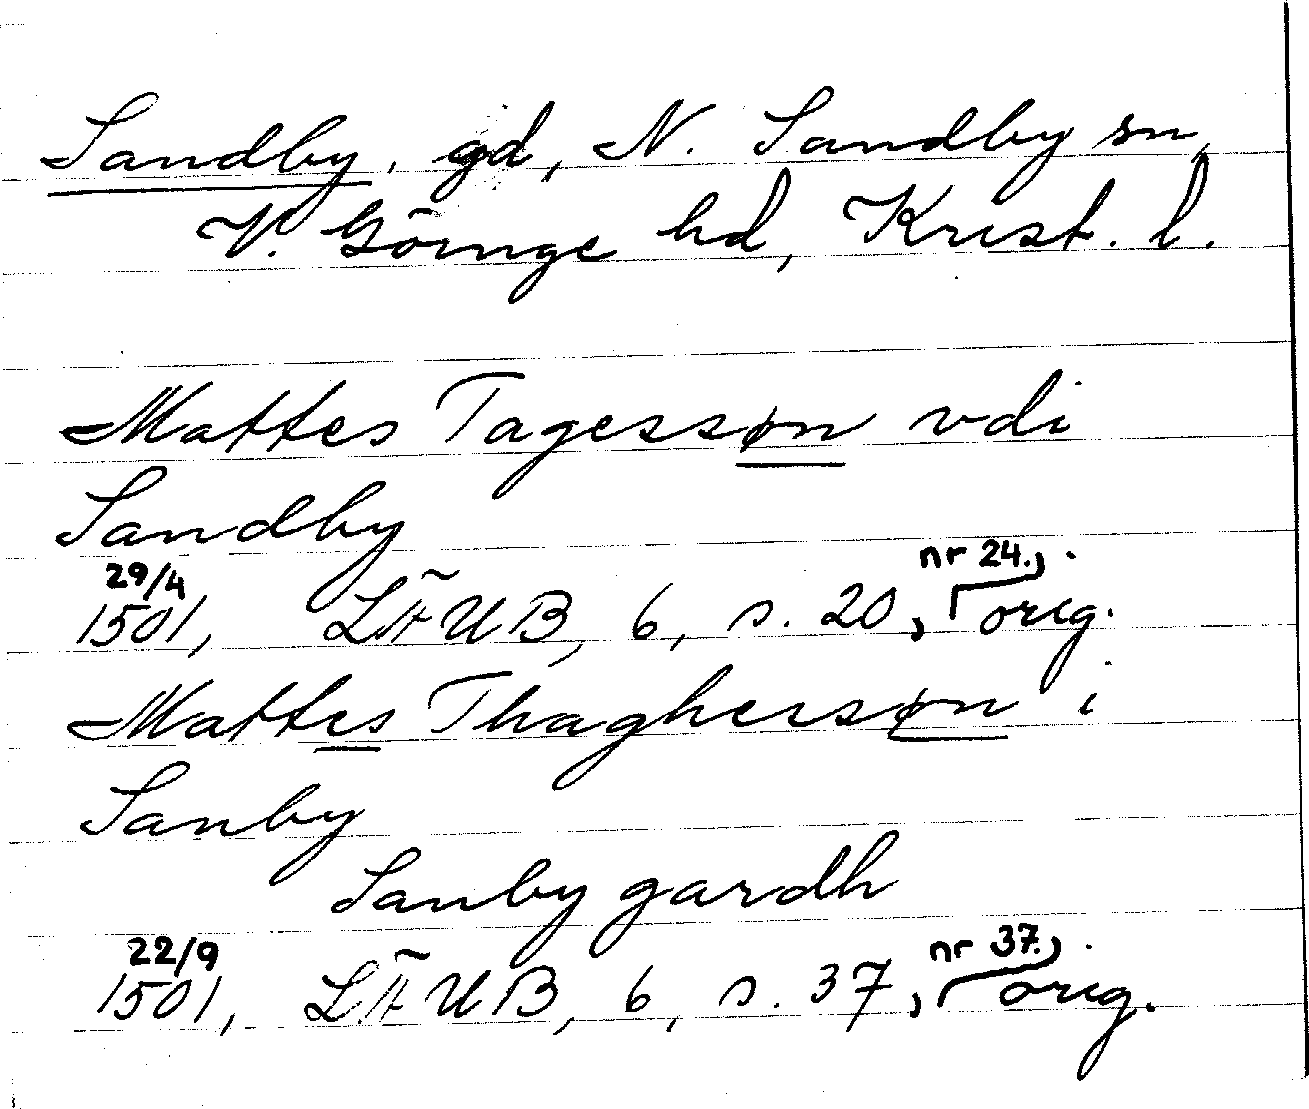 Sandby, gd, N. Sandby sn,
V. Göinge hd, Krist. l.
Mattes Tagessøn vdi
Sandby
29/4 nr 24.,
1501, LÄUB, 6, s. 20, orig.
Mattis Thaghersøn i
Sanby
Sanby gardh
22/9 nr 37.,
1501, LÄUB, 6, s. 37, orig.